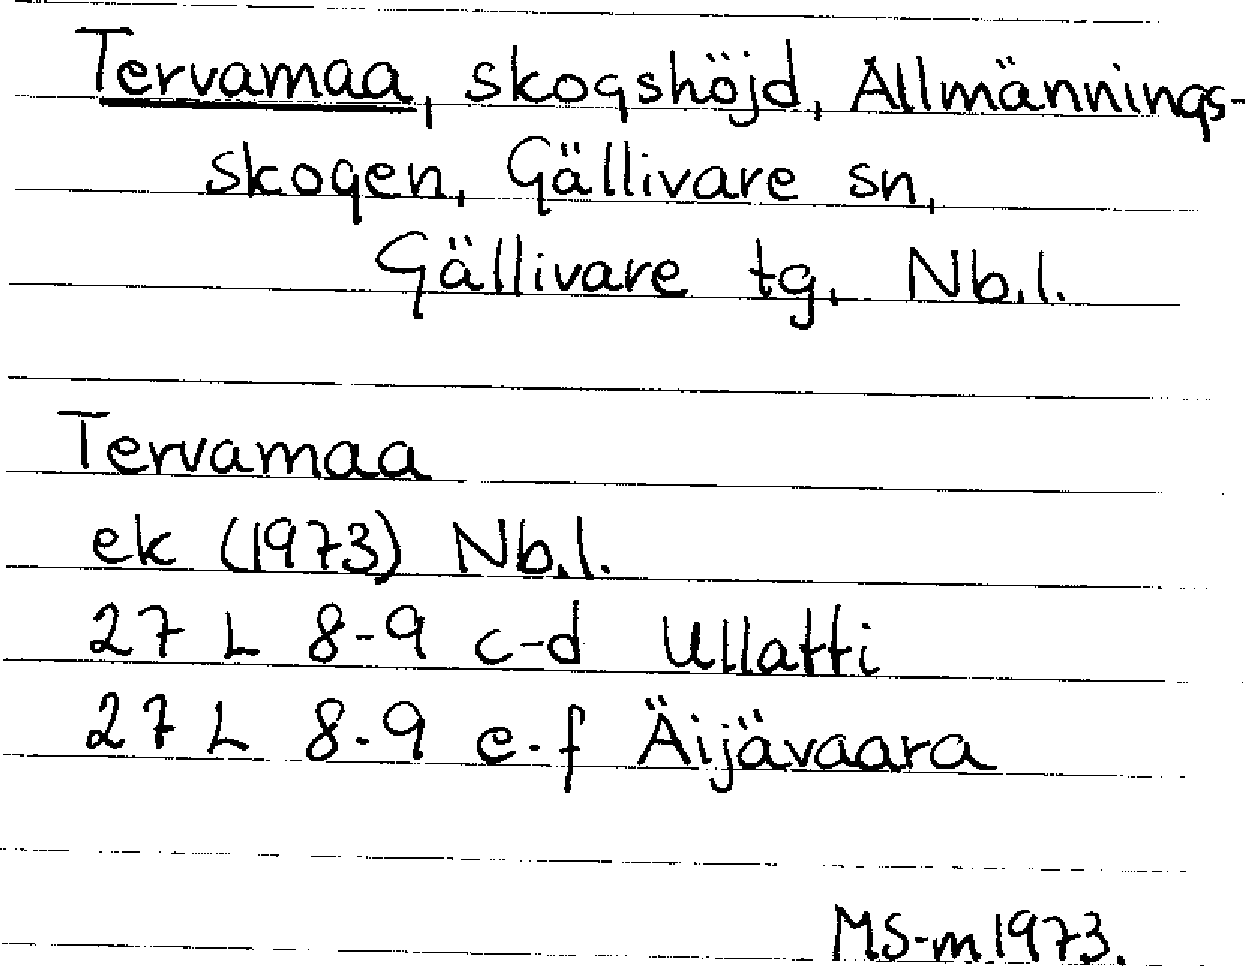 Tervamaa, skogshöjd, Allmännings-
skogen, Gällivare sn,
Gällivare tg, Nb.l.
Tervamaa
ek (1973) Nb.l.
27 L 8-9 c-d Ullatti
27 L 8-9 e-f Äijävaara
MS-m 1973.